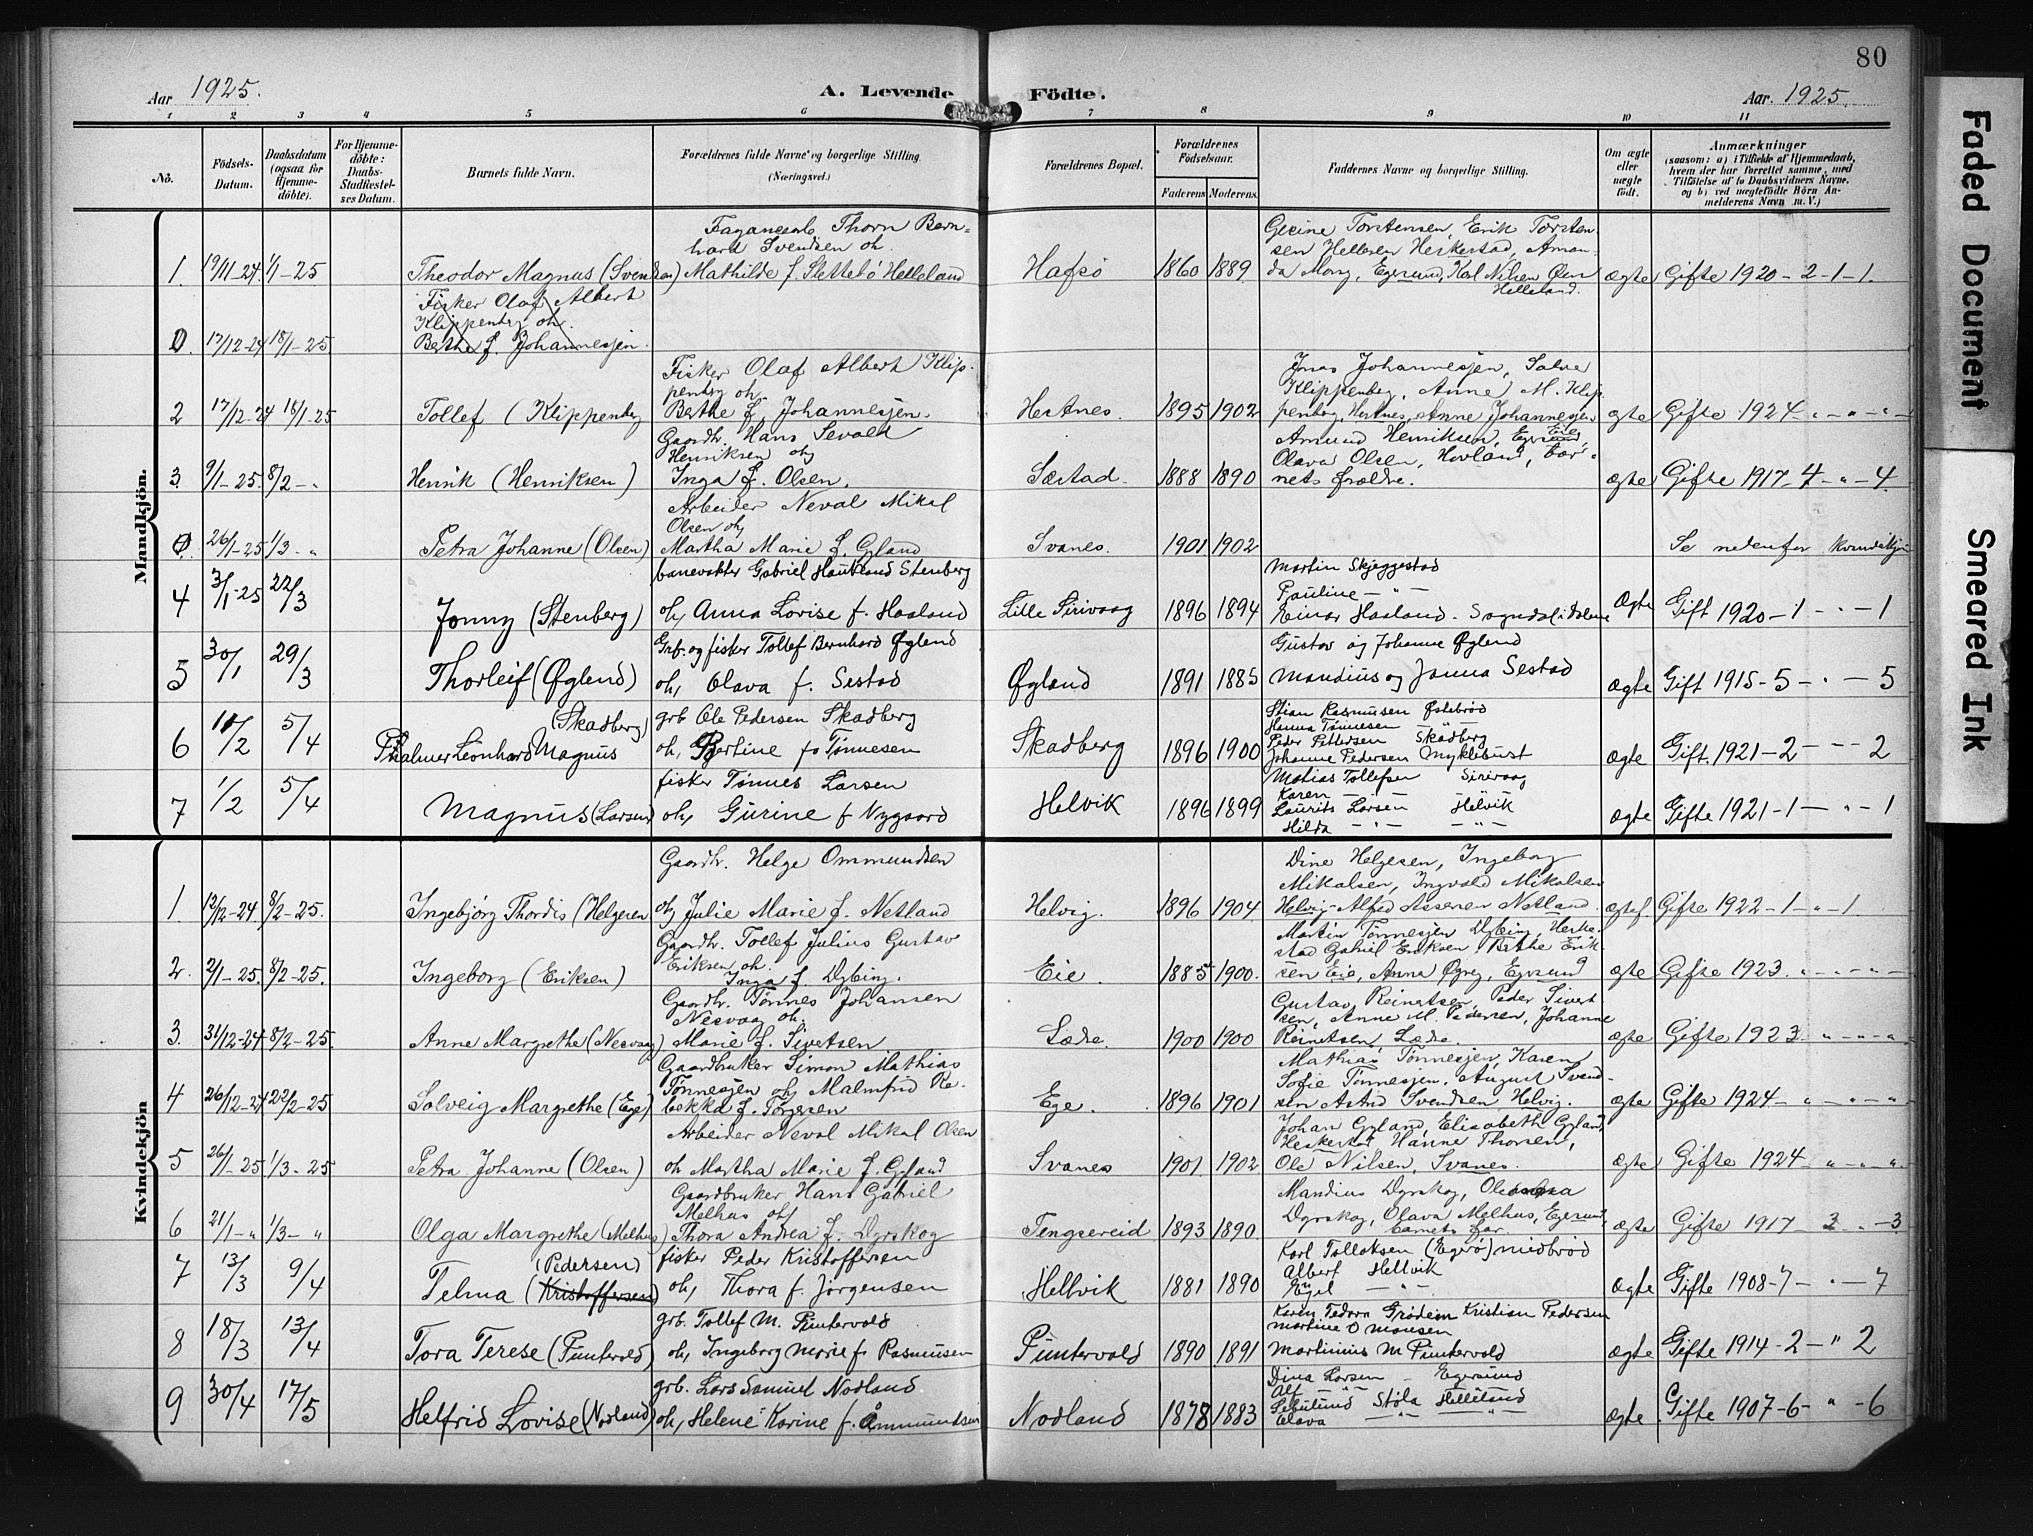 80
Aar 1925.
A. Levende Födte.
Aar. 1925.
1 2 3 4 5 6 7 8 9 10 11
No.
Födsels-Datum.
Daabsdatum (ogsaa for Hjemme-döbte).
For Hjemme-döbte: Daabs-Stadfestel-ses Datum.
Barnets fulde Navn.
Forældrenes fulde Navne og borgerlige Stilling. (Næringsvei.)
Forældrenes Bopæl.
Forældrenes Födselsaar.
Faderens Moderens
Faddernes Navne og borgerlige Stilling.
Om ægte eller uægte födt.
Anmærkninger
(saasom: a) i Tilfælde af Hjemmedaab,
hvem der har forrettet samme, med
Tilföielse af to Daabsvidners Navne.
og b) ved uægtefödte Börn An-
melderens Navn m. V.)
Mandkjön.
1 19/11-24. 1/1-25 Theodor Magnus (Svendsen) Thorn Bern=
hard Svendsen oh.
Mathilde f. Slettebö Helleland
Hafsö 1860 1889
Gesine Torstensen, Erik Torsten-
sen Helleren Heskestad, Aman-
da Mong, Egersund, Karl Nilsen Øen
Helleland.
ægte Gifte 1920-2-1-1.
0. 17/12-24 18/1-25 Fisker Olaf Albert
Klippenberg oh.
Berthe f. Johannesjen.
2 17/12-24 18/1-25 Tollef (Klippenberg
Fisker Olaf Albert Klip-
penberg oh.
Berthe f. Johannesjen.
Hestnes. 1895 1902
Jonas Johannesjen, Salve
Klippenberg, Anne M. Klip
penberg, Hestnes, Anne Johannesjen,
ægte Gifte 1924 - " - " -
3. 9/1-25. 8/2-". Henrik (Henriksen)
Gaardbr. Hans Sevald
Henriksen oh
Inga f. Olsen.
Sæstad. 1888 1890
Amund Henriksen, Eie, Egersund,
Olava Olsen, Hovland, bar-
nets forældre.
ægte Gifte 1917-4-"-4.
0. 26/1-25 1/3-" Petra Johanne (Olsen)
Arbeider Neval Mikal
Olsen oh
Martha Marie f. Gyland
Svanes. 1901 1902 Se nedenfor kvindekjön
4 3/1-25 22/3 Jonny (Stenberg)
banevokter Gabriel Haukland Stenberg
oh, Anna Lovise f. Haaland
Lille Sirivaag 1896 1894
Martin Skjeggestad
Pauline -"-
Einar Haaland - Sogndal i Dalene
Ægte Gift 1920-1-"-1
5 30/1 29/3 Thorleif (Øglend)
Grb. og fisker Tollef Bernhard Øglend
oh, Olava f. Sestad
Øgland 1891 1885
Gustav og Johanne Øglend
Mandius og Janna Sestad
ægte Gift 1915-5-"-5
6 10/2 5/4 (Skadberg)
Thalmer Leonhard Magnus
grb Ole Pedersen Skadberg
oh, Bertine f. Tønnesen
Skadberg 1896 1900
Stian Rasmussen Østebrød
Hanna Tønnesen -"-
Peder Pettersen Skadberg
Johanne Pedersen Myklebust
ægte Gift. 1921-2-"-2
7 1/2 5/4 Magnus (Larsen)
fisker Tønnes Larsen
oh, Gurine f Nygaard
Helvik 1896 1899
Matias Tollefsen Sirivaag
Karen -"- -"-
Laurits Larsen Helvik
Hilda -"- -"-
ægte Gifte 1921-1-"-1
Kvindekjön
1 12/12-24 8/2-25. Ingebjørg Thordis (Helgesen
Gaardbr. Helge Ommundsen
oh Julie Marie f. Netland
Helvig. 1896 1904
Dine Helgesen, Ingeborg
Mikalsen, Ingvald Mikalsen
Helvig Alfred Assersen Netland.
ægtef. Gifte 1922-1-"-1.
2. 2/1-25. 8/2-25. Ingeborg (Eriksen)
Gaardbr. Tollef Julius Gustav
Eriksen oh.
Inga f. Dybing.
Eie. 1885 1900.
Martin Tønnesjen Dybing, Heske-
stad Gabriel Eriksen Berthe Erik-
sen Eie, Anna Øgrej, Egersund
ægte Gifte 1923. " - " - " -
3. 31/12-24 8/2-25. Anne Margrethe (Nesvaag)
Gaardbr. Tønnes Johansen
Nesvaag oh.
Marie f. Sivertsen
Lædre. 1900 1900
Gustav Reinertsen, Peder Sivert
sen, Anne M. Pedersen, Johanne
Reinertsen Lædre.
ægte Gifte 1923 " - " - "
4 26/12-24 22/2-25 Solveig Margrethe (Ege)
Gaardbruker Simon Mathias
Tønnesjen oh Malmfrid Re-
bekka f. Torgersen
Ege. 1896 1901
Mathias Tønnesjen, Karen
Sofie Tønnesjen, August Svend-
sen Astrid Svendsen Helvig.
ægte Gifte 1924 - " - " - "
5 26/1-25 1/3-25 Petra Johanne (Olsen)
Arbeider Neval Mikal Olsen
oh Martha Marie f. Gyland
Svanes 1901. 1902
Johan Gyland, Elisabeth Gyland,
Heskestad Hanne Thorsen,
Ole Nilsen, Svanes.
ægte Gifte 1924 " - " - "
6 21/1-" 1/3-" Olga Margrethe (Melhus)
Gaardbruker Hans Gabriel
Melhus oh
Thora Andrea f. Dyrskog
Tengsereid 1893 1890
Mandius Dyrskog,
Dyrskog, Olava Melhus, Egersund,
barnets far.
ægte Gifte 1917 - 3 " - 3.
7 13/3 9/4 (Pedersen)
Telma (Kristoffersen)
fisker Peder Kristoffersen
oh, Thora f. Jørgensen
Hellvik 1881 1890
Karl Tollaksen (Egerø) Midbrød
Albert Hellvik
Egel -"-
ægte Gifte 1908-7-"-7
8 18/3 13/4 Tora Terese (Puntervold)
grb. Tollef M. Puntervold
oh, Ingeborg Marie f. Rasmussen
Puntervold 1890 1891
Karen Tedora Grødem Kristian Pedersen
Martine O Monsen
Martinius M Puntervold
ægte Gifte 1914-2-"2
9 30/4 17/5 Helfrid Lovise (Nodland)
grb. Lars Samuel Nodland
oh, Helene Karine f. Åmmundsen
Nodland 1878 1883
Dina Larsen - Egersund
Alf -"-
Støla Helleland
Olava -"- "
ægte Gifte 1907-6-"-6
Faded Document
Smeared Ink